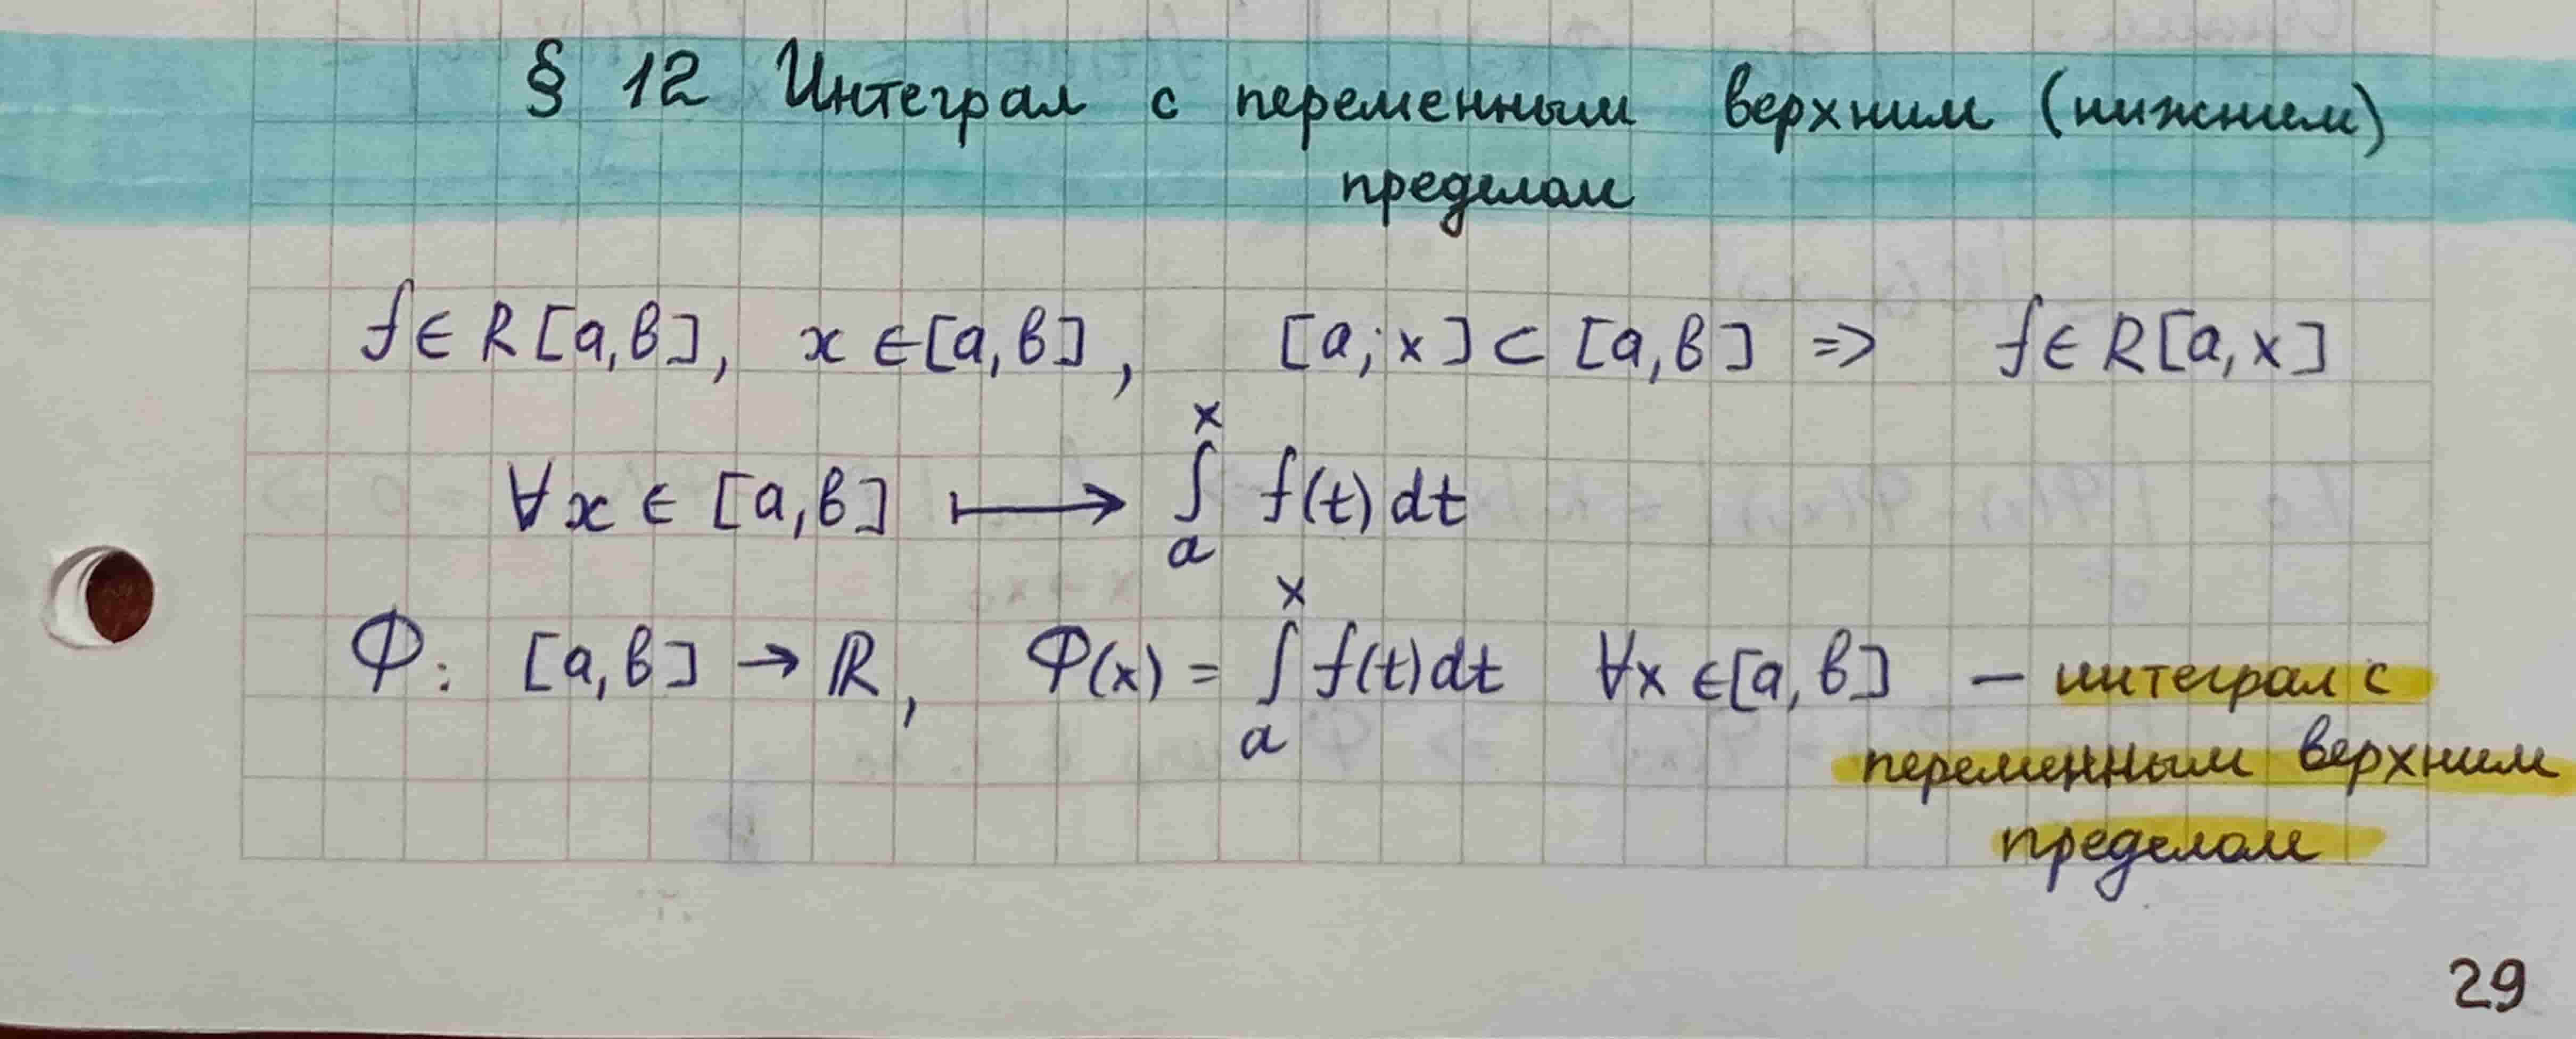 § 12 Интеграл с переменным верхним (нижним)
пределом
f ∈ R [a, b], x ∈ [a, b], [a; x] ⊂ [a, b] => f ∈ R [a, x]
∀x ∈ [a, b] ⟼ ∫ₐˣ f(t) dt
Φ: [a, b] → ℝ, Φ(x) = ∫ₐˣ f(t) dt ∀x ∈ [a, b] — интеграл с
переменным верхним
пределом
29